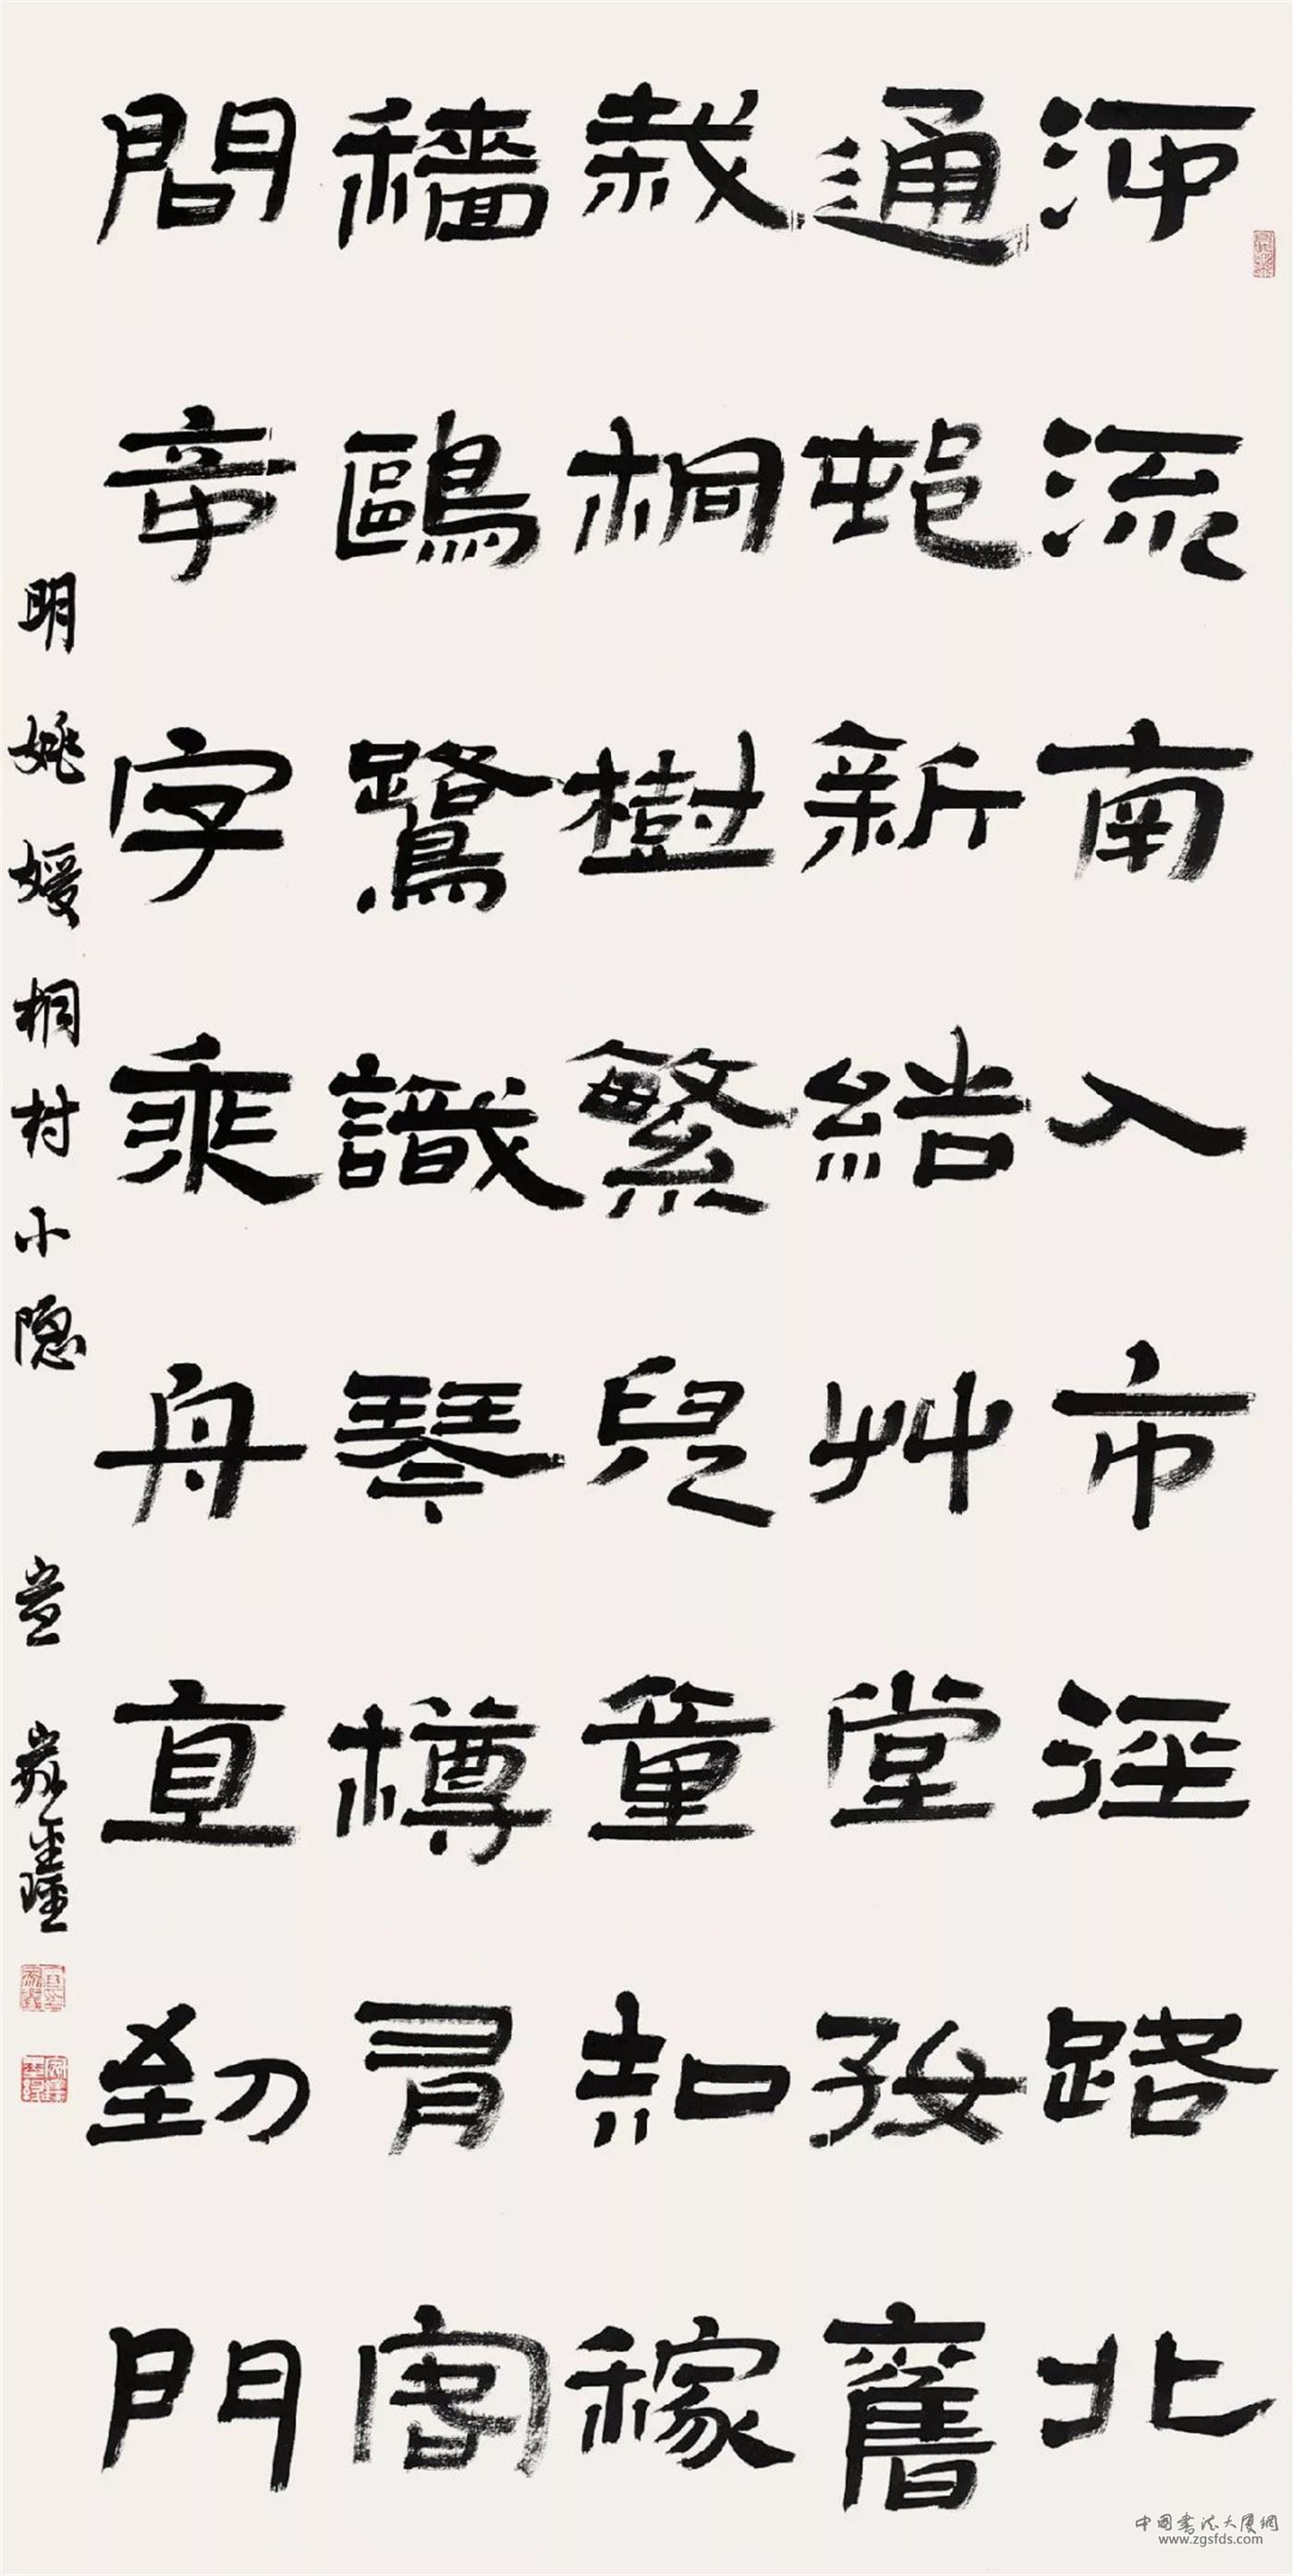 河流南入市涇路北
通邨新結艸堂好舊
栽桐樹繁兒童知稼
穡鷗鷺識琴樽有客
問奇字乘舟直到門
明姚媛桐村小隐
中国书法大厦網
www.zgsfds.com